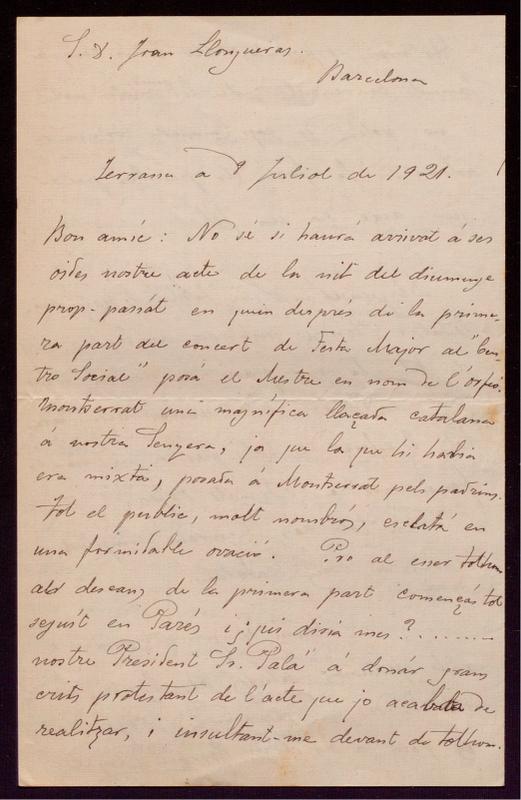 S. D. Joan Llongueras.
Barcelona
Terrassa a 9 Juliol de 1921.
Bon amic: No sé si haurá arrivat á ses
oides nostre acte de la nit del diumenge
prop-passát en quin després de la prime-
ra part del concert de Festa Major al "Cen-
tro Social" posá el Mestre en nom de l'orfeó
Montserrat una magnífica llaçada catalana
á nostra Senyera, ja que la que hi habia
era mixta, posada á Montserrat pels padrins.
Tot el public, molt nombrós, esclatá en
una formidable ovació. Pro al esser tothom
al descans, de la primera part començás tot
seguít en Parés i ¿qui diria mes?........
nostre President Sr. Palá á donár grans
crits protestant de l'acte que jo acababa de
realitzar, i insultant-me devant de tothom.